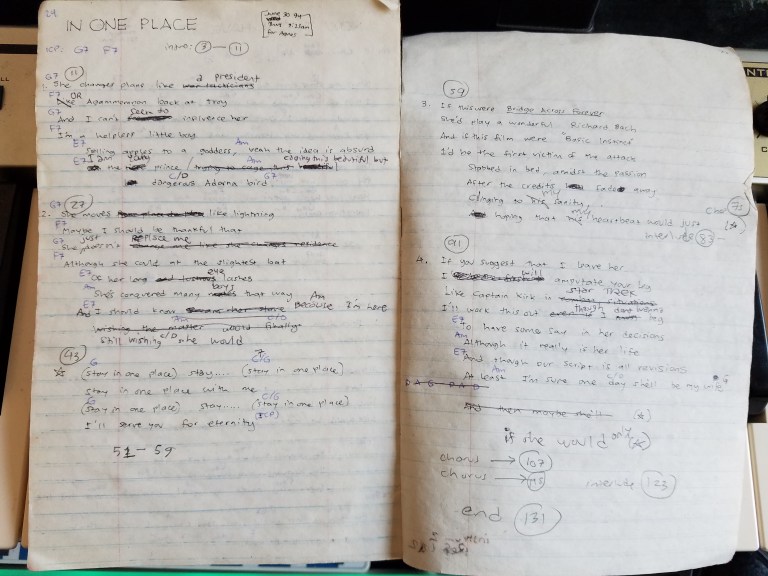 29.
IN ONE PLACE
June 30 94
for Agnes
G7 F7 intro: 3 — 11
G7 11
a president
1. She changes plans like
F7 OR
Agamemnon back at Troy
G7 seem to
And I can't influence her
F7
I'm a helpless little boy
E7 Am
Selling apples to a goddess, yeah the idea is absurd
E7 I am Am caging this beautiful but
me prince /
C/D G7
dangerous Adarna bird.
G7 27
2. She moves like lightning
F7
Maybe I should be thankful that
G7 just replace me
She doesn't
F7
Although she could at the slightest bat
E7 eye
Of her long lashes
Am boys
She's conquered many that way
E7 Am
And I should know because I'm here
wishing the matter would finally
C/D
Still wishing she would
43
G C/G
☆ (stay in one place) stay.... (stay in one place)
stay in one place with me
G C/G
(stay in one place) stay.... (stay in one place)
I'll serve you for eternity
51 – 59
59
3. If this were Bridge Across Forever
She'd play a wonderful Richard Bach
And if this film were "Basic Instinct"
I'd be the first victim of the attack
Stabbed in bed, amidst the passion
After the credits fade away
my
Clinging to sanity,
my
hoping that heartbeat would just
75
(☆)
interlude 83 –
91
4. If you suggest that I leave her
will
I amputate your leg
Star Trek
Like Captain Kirk in
though
I'll work this out
E7
To have some say in her decisions
Am
Although it really is her life
E7
And though our script is all revisions
Am C/D
At least I'm sure one day she'll be my wife
D A G D A D
And then maybe she'll (☆)
if she would only (☆)
chorus → 107
chorus → 115
interlude 123
end 131